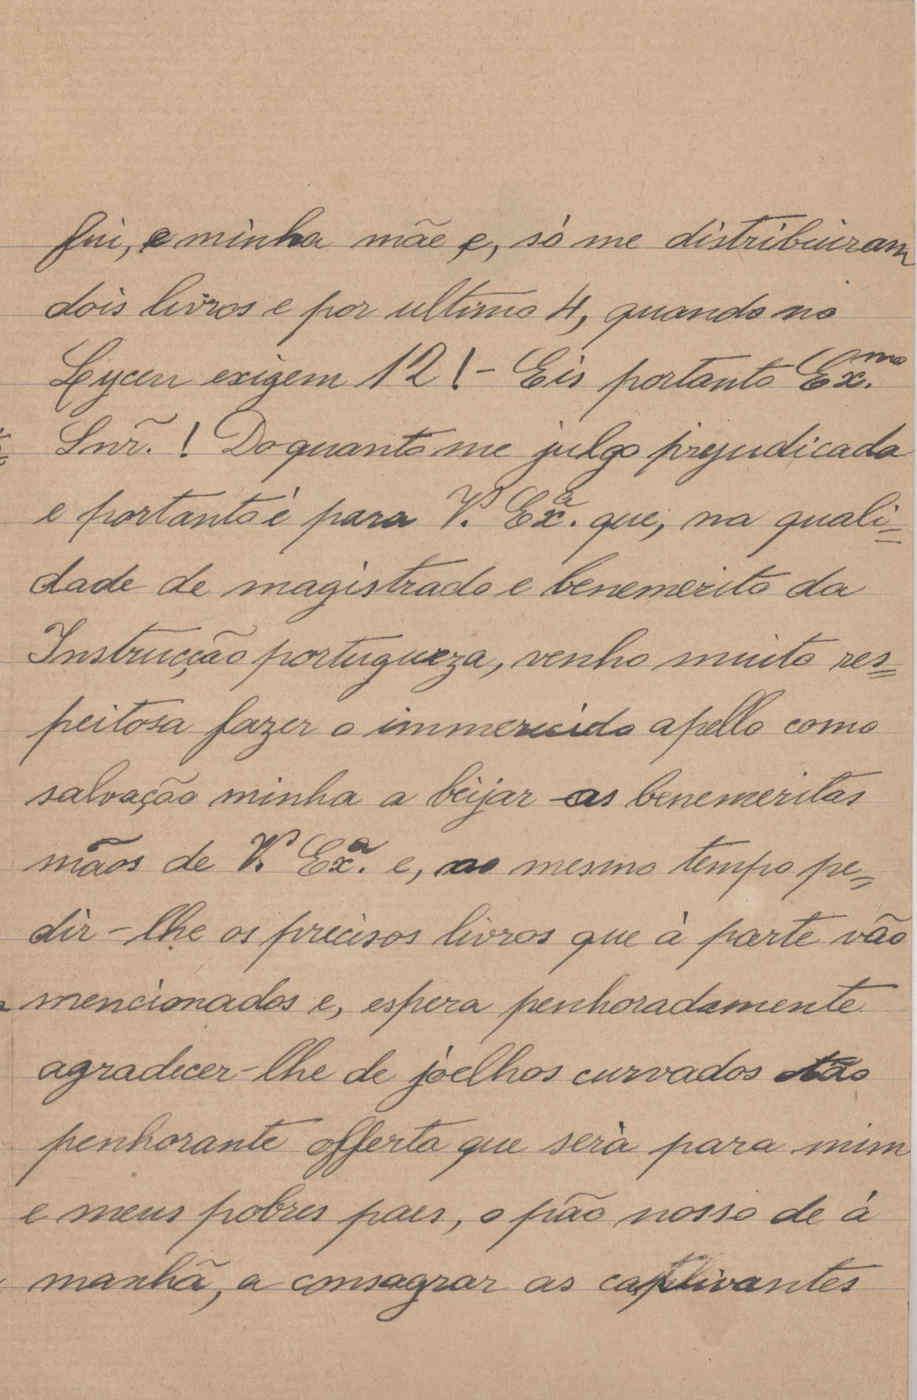 fui, e minha mãe e, só me distribuiram
dois livros e por ultimo 4, quando no
Lyceu exigem 12! - Eis portanto Ex.mo
Snr. ! Do quanto me julgo prejudicada
e portanto é para V. Ex.a que, na quali=
dade de magistrado e benemerito da
Instrucção portugueza, venho muito res=
peitosa fazer o immerecido apello como
salvação minha a beijar as benemeritas
mãos de V. Ex.a e, ao mesmo tempo pe=
dir-lhe os precisos livros que à parte vão
mencionados e, espera penhoradamente
agradecer-lhe de joelhos curvados tão
penhorante offerta que serà para mim
e meus pobres paes, o pão nosso de á
manhã, a consagrar as captivantes